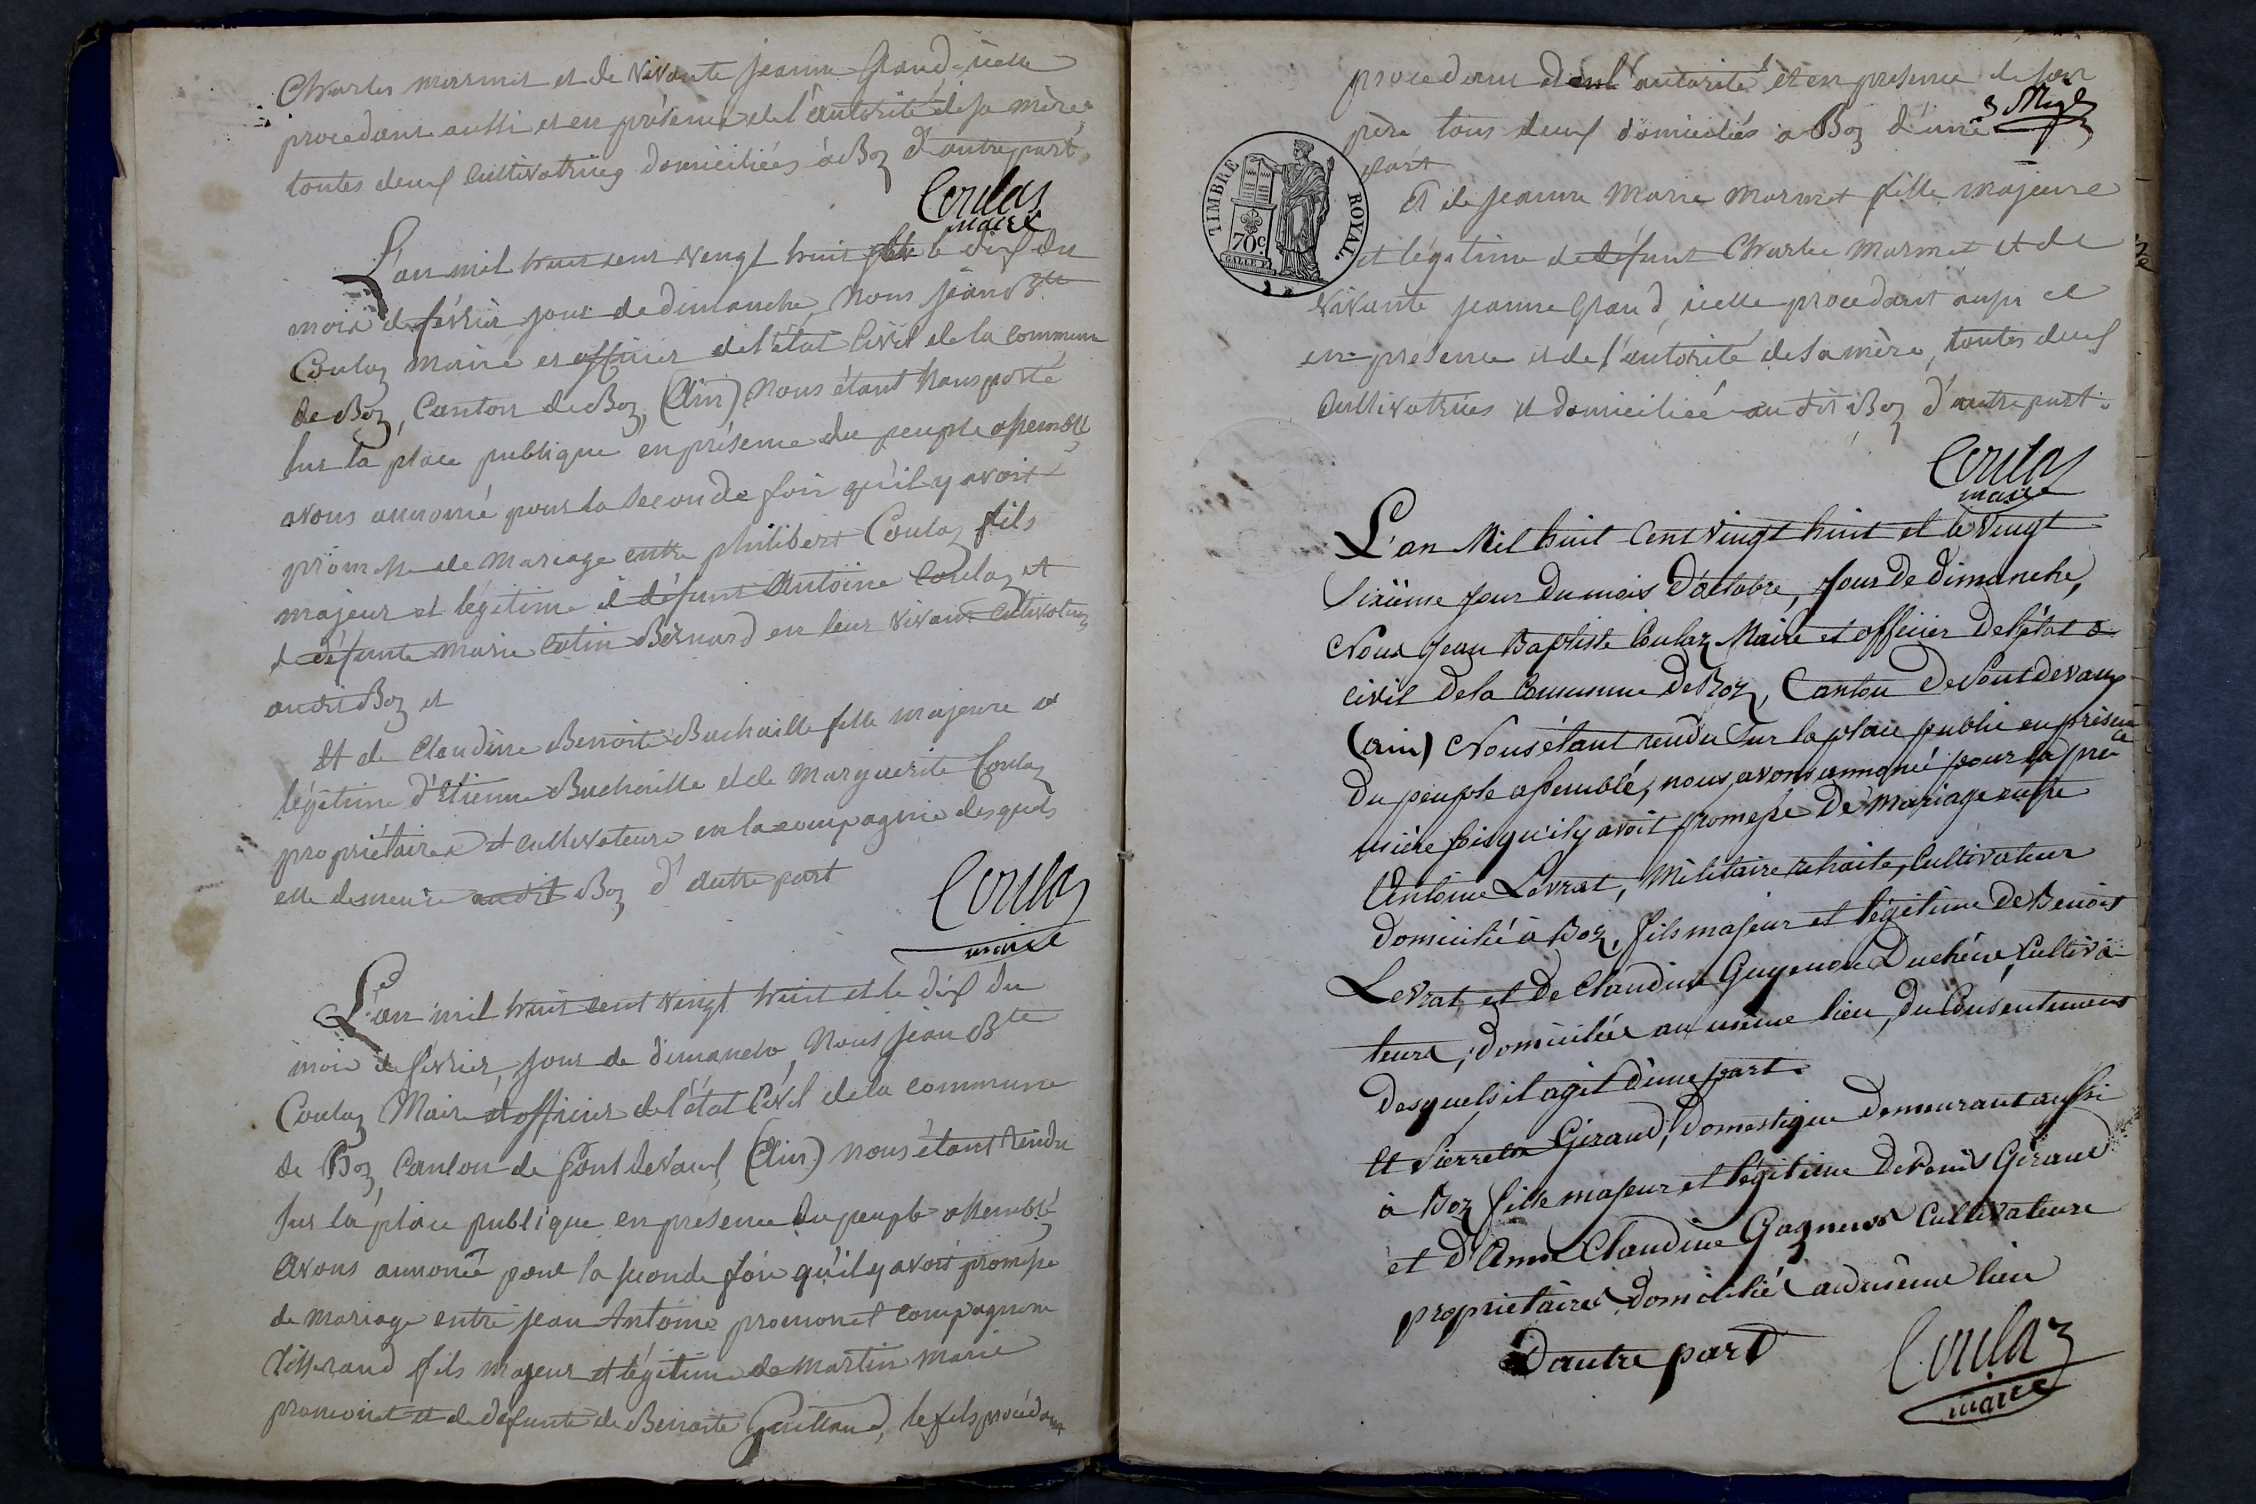 Charles marmet et de vivante jeanne Grand icelle
procedant aussi et en présence et de l'autorité de sa mère
toutes deux cultivatrices domiciliées à Boz d'autre part,
Coulas
maire
L'an mil huit cent vingt huit le dix du
mois de février jour de dimanche, Nous jean Bte
Coulaz Maire et officier de l'état Civil de la commune
de Boz, Canton de Boz, (Ain) Nous étant transporté
sur la place publique en présence du peuple assemblé
avons annoncé pour la seconde fois qu'il y avoit
promesse de mariage entre philibert Coulaz fils
majeur et légitime de défunt Antoine Coulaz et
de défunte Marie Catin Bernard en leur vivant cultivateurs
audit Boz et
Et de Claudine Benoite Buchaille fille majeure et
légitime d'Etienne Buchaille et de Marguerite Coulaz
propriétaires et cultivateurs en la compagnie desquels
elle demeure audit Boz d'autre part
Coulaz
maire
L'an mil huit cent vingt huit et le dix du
mois de février, jour de dimanche, Nous jean Bte
Coulaz Maire et officier de l'état Civil de la commune
de Boz Canton de Pont devaux (Ain) nous étant rendu
sur la place publique en présence du peuple assemblé
avons annoncé pour la seconde fois qu'il y avoit promesse
de mariage entre jean Antoine promonet compagnon
tisserand fils majeur et légitime de Martin Marie
promonet et de defunte de Benoite Guillaud, le fils procédant
procedant de l'autorité et en presence de son
père tous deux domiciliés à Boz d'une
part
TIMBRE ROYAL
70c
Et de jeanne Marie Marmet fille majeure
et légitime de défunt Charles Marmet et de
vivante jeanne Grand, icelle procedant aussi et
en présence et de l'autorité de sa mère, toutes deux
cultivatrices et domiciliée audit Boz d'autre part.
Coulaz
maire
L'an Mil huit Cent vingt huit et le vingt
sixième jour du mois d'octobre, jour de dimanche,
Nous Jean Baptiste Coulaz Maire et officier de l'état
civil de la Commune de Boz, Canton de Pont de vaux
(ain) Nous étant rendu sur la place public en présence
du peuple assemblé, nous avons annoncé pour la pre
mière fois qu'il y avoit promesse de mariage entre
Antoine Levrat, Militaire retraité, Cultivateur
domicilié à Boz, fils majeur et légitime de Benoit
Levrat et de Claudine Guyenon Duchêne, Cultiva-
teurs, domiciliés au même lieu, du Consentement
desquels il agit d'une part.
Et Pierrette Giraud, domestique demeurant aussi
à Boz fille majeur et légitime de Denis Giraud
et d'Anne Claudine Gagneur Cultivateurs
proprietaires domicilié au même lieu
D'autre part
Coulaz
maire